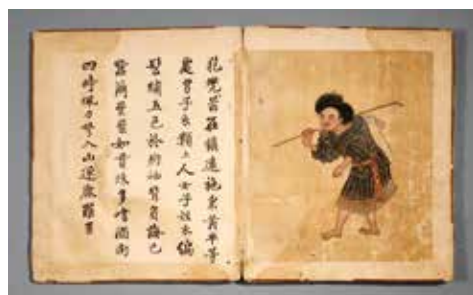 兜苗在鎮遠施秉黃平等
處男子衣類土人女子短衣編
髻繡五色於胸袖背負海巴
蠶繭纍纍如貫珠多嗜酒
四時佩刀弩入山逐鹿羅雀